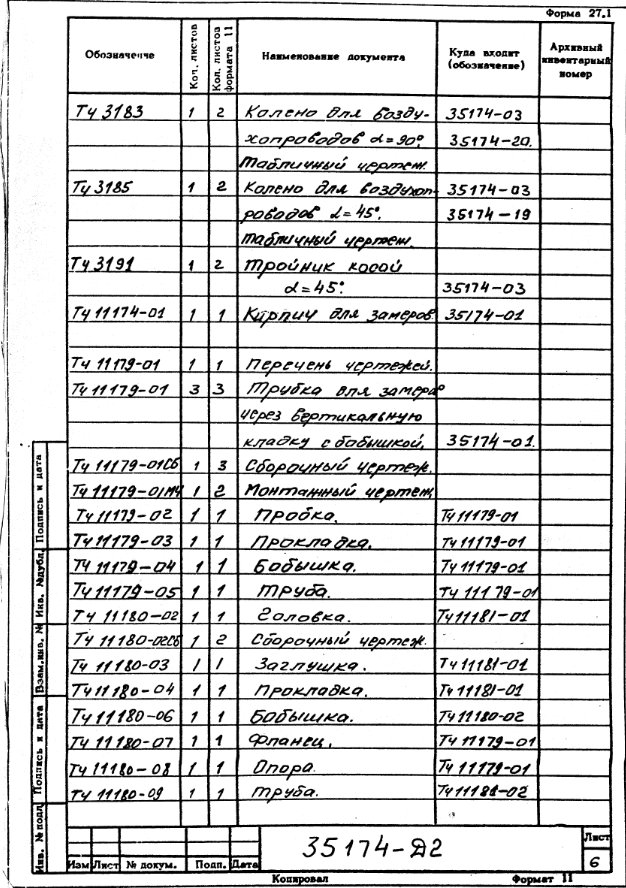 Форма 27.1
Обозначение Кол. листов Кол. листов формата 11 Наименование документа Куда входит (обозначение) Архивный инвентарный номер
ТЧ 3183 1 2 Колено для возду- 35174-03
хопроводов α=90° 35174-20.
Табличный чертеж.
ТЧ 3185 1 2 Колено для воздухоп- 35174-03
роводов α=45°. 35174-19
Табличный чертеж.
ТЧ 3191 1 2 Тройник косой
α=45°. 35174-03
ТЧ 11174-01 1 1 Кирпич для замеров 35174-01
ТЧ 11179-01 1 1 Перечень чертежей.
ТЧ 11179-01 3 3 Трубка для замера
через вертикальную
кладку с бобышкой. 35174-01.
ТЧ 11179-01СБ 1 3 Сборочный чертеж.
ТЧ 11179-01МЧ 1 2 Монтажный чертеж
ТЧ 11179-02 1 1 Пробка. ТЧ 11179-01
ТЧ 11179-03 1 1 Прокладка. ТЧ 11179-01
ТЧ 11179-04 1 1 Бобышка. ТЧ 11179-01
ТЧ 11179-05 1 1 Труба. ТЧ 11179-01
ТЧ 11180-02 1 1 Головка. ТЧ 11181-01
ТЧ 11180-02СБ 1 2 Сборочный чертеж.
ТЧ 11180-03 1 1 Заглушка. ТЧ 11181-01
ТЧ 11180-04 1 1 Прокладка. ТЧ 11181-01
ТЧ 11180-06 1 1 Бобышка. ТЧ 11180-02
ТЧ 11180-07 1 1 Фланец. ТЧ 11179-01
ТЧ 11180-08 1 1 Опора. ТЧ 11179-01
ТЧ 11180-09 1 1 Труба. ТЧ 11181-02
Инв. № подл. Подпись и дата Взам.инв. № Инв. №дубл. Подпись и дата
35174-Д2
Лист
6
Изм Лист № докум. Подп. Дата
Копировал Формат 11